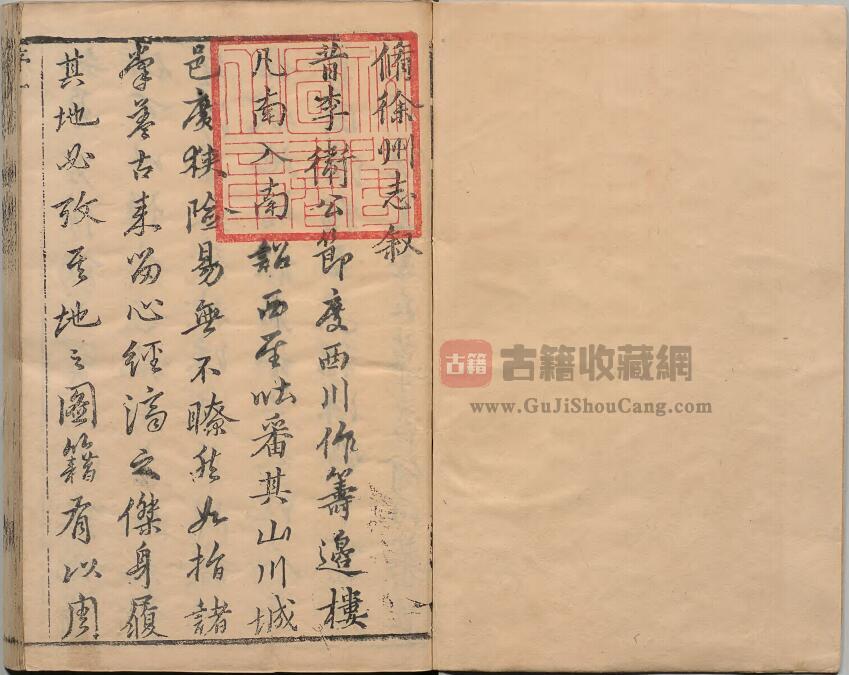 脩徐州志叙
昔李衛公節度西川作籌邊樓
凡南入南詔西至吐番其山川城
邑廣狹險易無不瞭然如指諸
掌葢古来留心經濟之傑身履
其地必攷其地之圖籍有以周
序一
古籍
古籍收藏網
www.GuJiShouCang.com